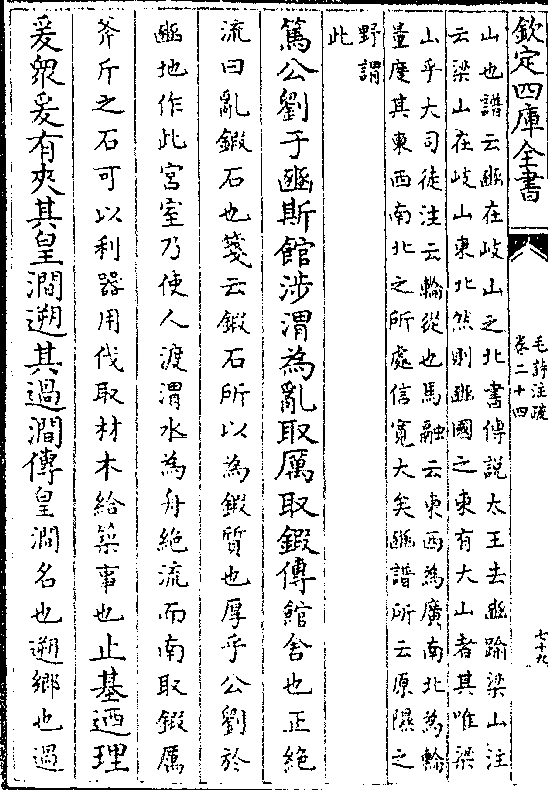 欽定四庫全書
毛詩注疏
卷二十四
七十九
山也譜云豳在岐山之北書傳説太王去豳踰梁山注
云梁山在岐山東北然則豳國之東有大山者其唯梁
山乎大司徒注云輪從也馬融云東西為廣南北為輪
量度其東西南北之所處信寛大矣豳譜所云原隰之
野謂
此
篤公劉于豳斯館涉渭為亂取厲取鍛傳館舍也正絶
流曰亂鍛石也箋云鍛石所以為鍛質也厚乎公劉於
豳地作此宫室乃使人渡渭水為舟絶流而南取鍛厲
斧斤之石可以利器用伐取材木給築事也止基迺理
爰衆爰有夾其皇澗遡其過澗傳皇澗名也遡鄉也過